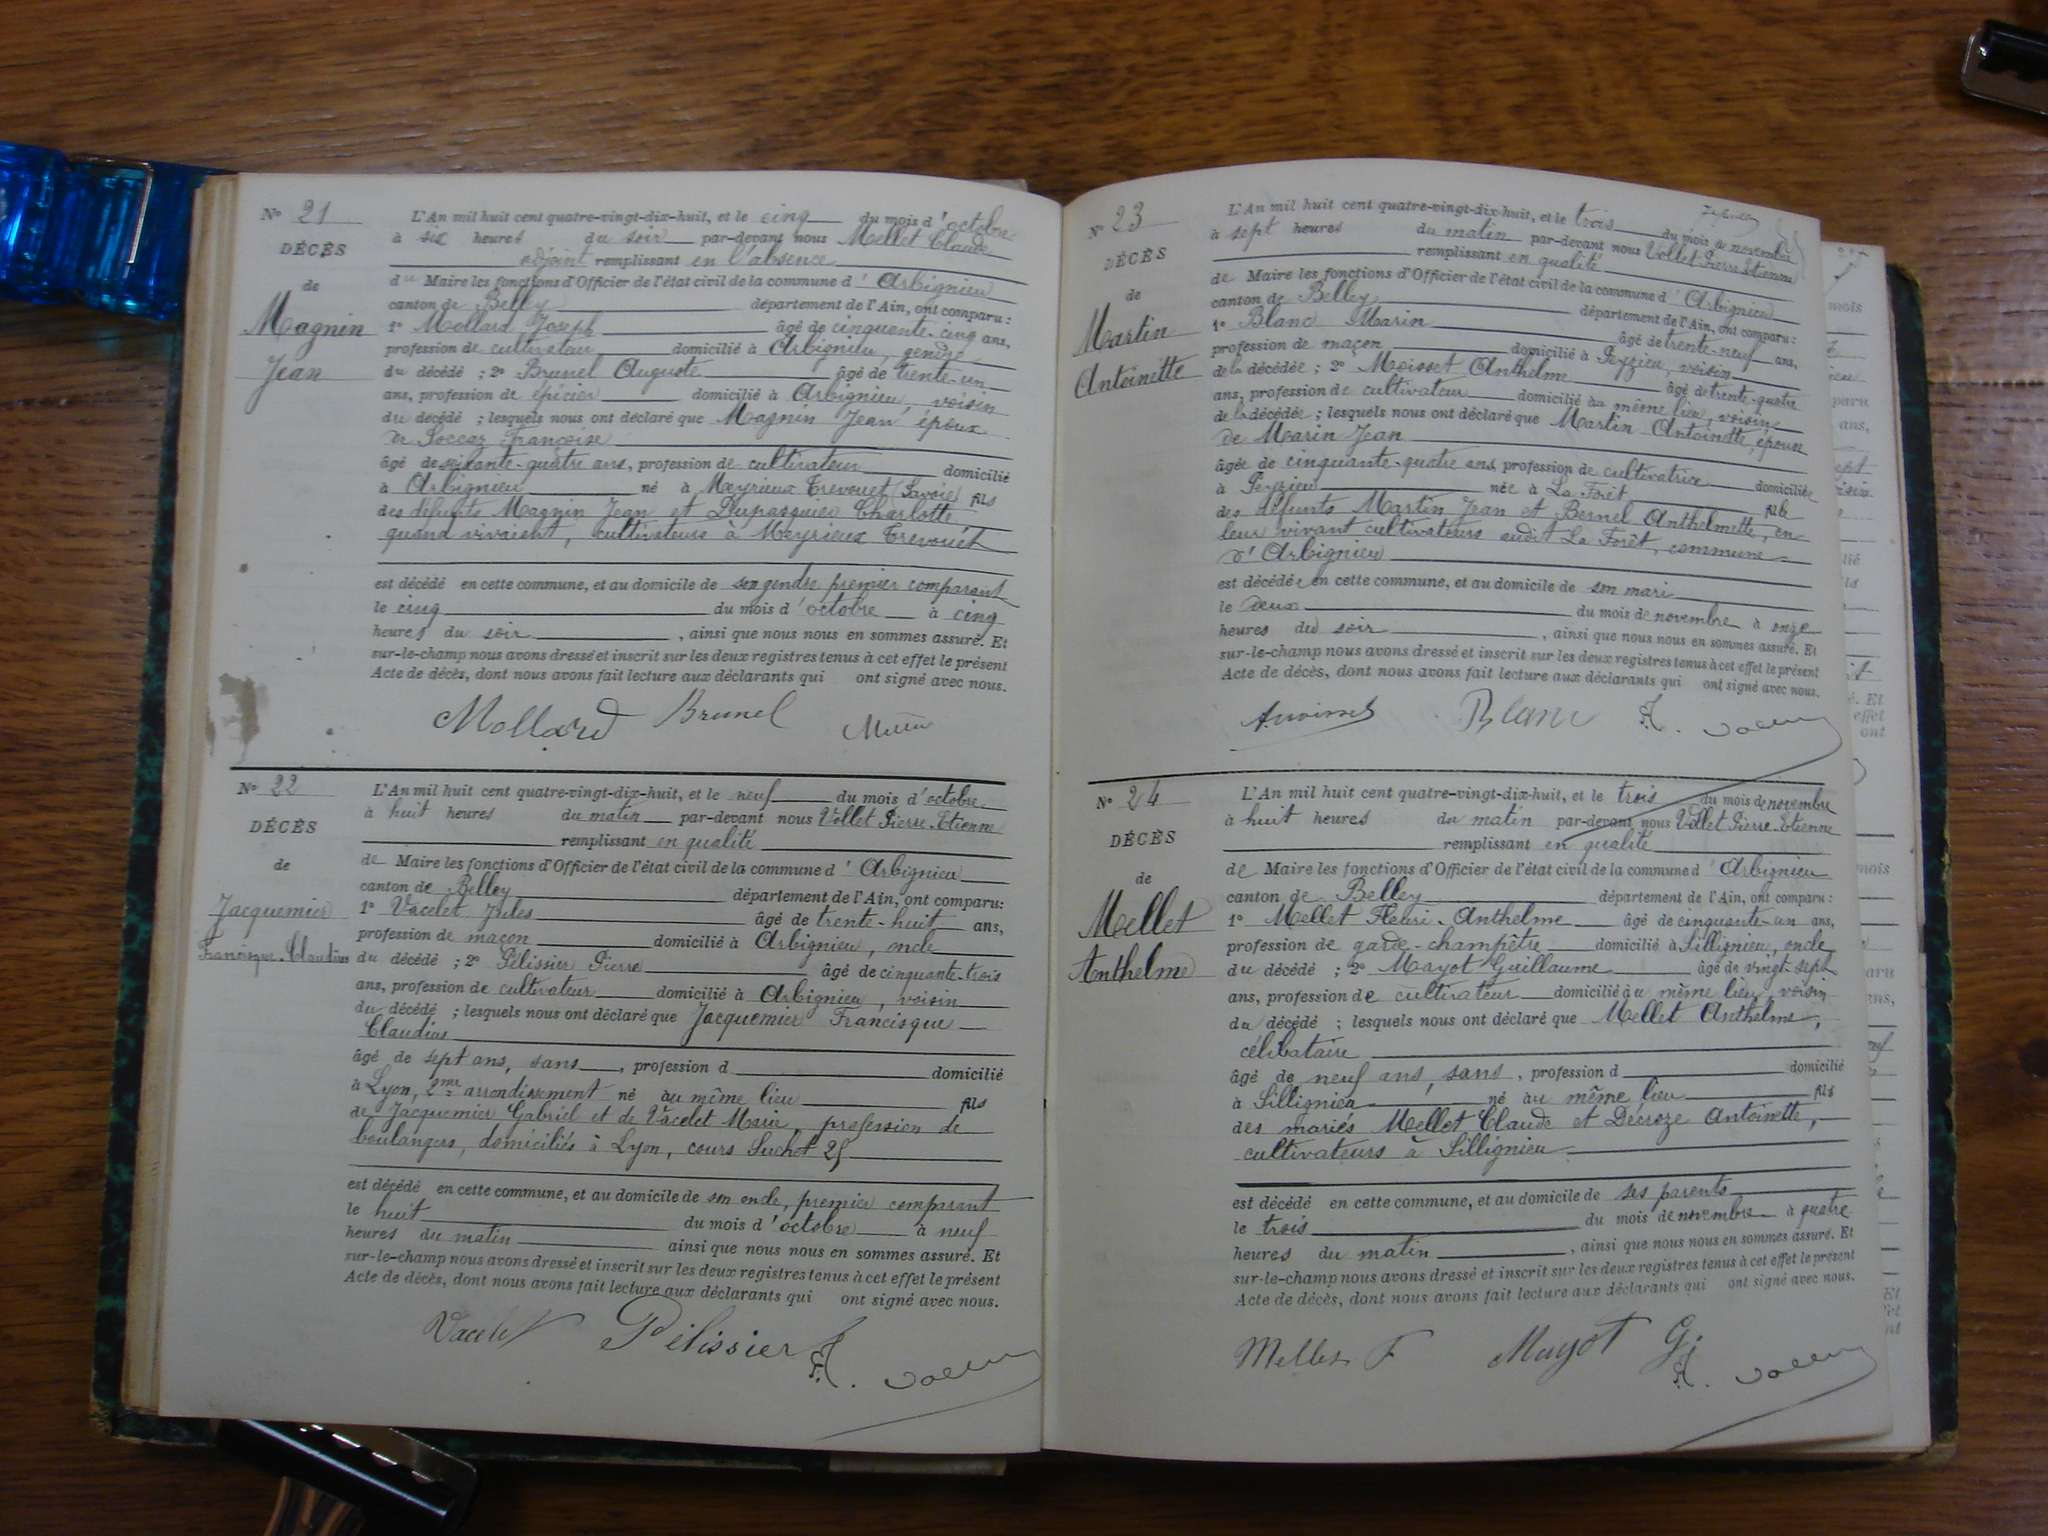 N° 21
DÉCÈS
de
Magnin
Jean
L'An mil huit cent quatre-vingt-dix-huit, et le cinq du mois d'octobre
à six heures du soir par-devant nous Mellet Claude
adjoint remplissant en l'absence
du Maire les fonctions d'Officier de l'état civil de la commune d'Arbignieu
canton de Belley département de l'Ain, ont comparu :
1° Mollard Joseph âgé de cinquante-cinq ans,
profession de cultivateur domicilié à Arbignieu, gendre
du décédé ; 2° Brunel Auguste âgé de trente-un
ans, profession de épicier domicilié à Arbignieu, voisin
du décédé ; lesquels nous ont déclaré que Magnin Jean, époux
de Soccaz Françoise
âgé de soixante-quatre ans, profession de cultivateur domicilié
à Arbignieu né à Meyrieux Trevouet (Savoie) fils
des défunts Magnin Jean et Dupasquier Charlotte,
quand vivaient, cultivateurs à Meyrieux Trevouet
est décédé en cette commune, et au domicile de son gendre premier comparant
le cinq du mois d'octobre à cinq
heures du soir, ainsi que nous nous en sommes assuré. Et
sur-le-champ nous avons dressé et inscrit sur les deux registres tenus à cet effet le présent
Acte de décès, dont nous avons fait lecture aux déclarants qui ont signé avec nous.
Mollard Brunel
N° 22
DÉCÈS
de
Jacquemier
Francisque-Claudius
L'An mil huit cent quatre-vingt-dix-huit, et le neuf du mois d'octobre
à huit heures du matin par-devant nous Vollet Pierre-Etienne
remplissant en qualité
de Maire les fonctions d'Officier de l'état civil de la commune d'Arbignieu
canton de Belley département de l'Ain, ont comparu :
1° Vacelet Jules âgé de trente-huit ans,
profession de maçon domicilié à Arbignieu, oncle
du décédé ; 2° Pélissier Pierre âgé de cinquante-trois
ans, profession de cultivateur domicilié à Arbignieu, voisin
du décédé ; lesquels nous ont déclaré que Jacquemier Francisque
Claudius
âgé de sept ans, sans, profession d domicilié
à Lyon, 2me arrondissement né au même lieu fils
de Jacquemier Gabriel et de Vacelet Marie, profession de
boulangers, domiciliés à Lyon, cours Suchet 25
est décédé en cette commune, et au domicile de son oncle, premier comparant
le huit du mois d'octobre à neuf
heures du matin ainsi que nous nous en sommes assuré. Et
sur-le-champ nous avons dressé et inscrit sur les deux registres tenus à cet effet le présent
Acte de décès, dont nous avons fait lecture aux déclarants qui ont signé avec nous.
Vacelet Pélissier
N° 23
DÉCÈS
de
Martin
Antoinette
L'An mil huit cent quatre-vingt-dix-huit, et le trois du mois de novembre
à sept heures du matin par-devant nous Vollet Pierre Etienne
remplissant en qualité
de Maire les fonctions d'Officier de l'état civil de la commune d'Arbignieu
canton de Belley département de l'Ain, ont comparu :
1° Blanc Marin âgé de trente-neuf ans,
profession de maçon domicilié à Peyzieu, voisin
de la décédée ; 2° Moisset Anthelme âgé de trente-quatre
ans, profession de cultivateur domicilié au même lieu, voisin
de la décédée ; lesquels nous ont déclaré que Martin Antoinette, épouse
de Marin Jean
âgée de cinquante-quatre ans, profession de cultivatrice domiciliée
à Peyzieu née à La Forêt fille
des défunts Martin Jean et Bernel Anthelmette, en
leur vivant cultivateurs audit La Forêt, commune
d'Arbignieu
est décédée en cette commune, et au domicile de son mari
le deux du mois de novembre à onze
heures du soir, ainsi que nous nous en sommes assuré. Et
sur-le-champ nous avons dressé et inscrit sur les deux registres tenus à cet effet le présent
Acte de décès, dont nous avons fait lecture aux déclarants qui ont signé avec nous.
Blanc
N° 24
DÉCÈS
de
Mellet
Anthelme
L'An mil huit cent quatre-vingt-dix-huit, et le trois du mois de novembre
à huit heures du matin par-devant nous Vollet Pierre-Etienne
remplissant en qualité
de Maire les fonctions d'Officier de l'état civil de la commune d'Arbignieu
canton de Belley département de l'Ain, ont comparu :
1° Mellet Fleuri-Anthelme âgé de cinquante-un ans,
profession de garde-champêtre domicilié à Sillignieu, oncle
du décédé ; 2° Mayot Guillaume âgé de vingt-sept
ans, profession de cultivateur domicilié au même lieu, voisin
du décédé ; lesquels nous ont déclaré que Mellet Anthelme,
célibataire
âgé de neuf ans, sans, profession d domicilié
à Sillignieu né au même lieu fils
des mariés Mellet Claude et Decroze Antoinette,
cultivateurs à Sillignieu
est décédé en cette commune, et au domicile de ses parents
le trois du mois de novembre à quatre
heures du matin, ainsi que nous nous en sommes assuré. Et
sur-le-champ nous avons dressé et inscrit sur les deux registres tenus à cet effet le présent
Acte de décès, dont nous avons fait lecture aux déclarants qui ont signé avec nous.
Mellet F Mayot G